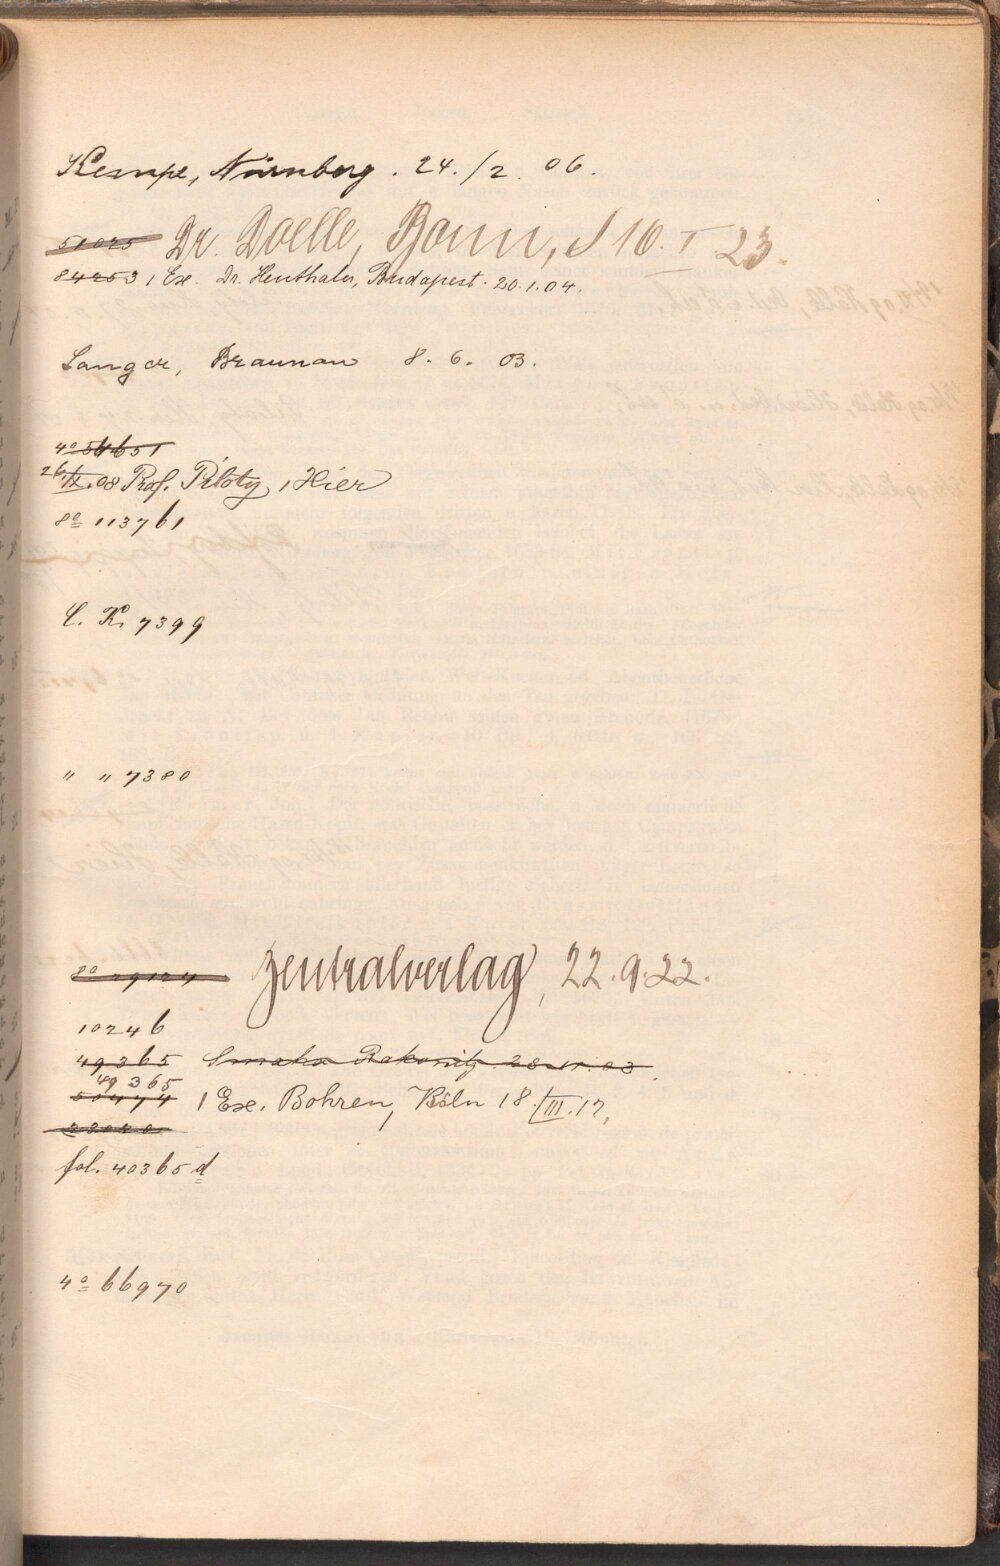 Kempe, Nürnberg. 24./2. 06.
51025 Dr. Doelle, Bonn, d 10. I 23.
84253 1 Ex. Dr. Heuthaler, Budapest. 20.1.04.
Langer, Braunau 8. 6. 03.
4° 54651
26./IX.08 Prof. Piloty, Hier
8° 113761
C. K. 7399
" " 7380
8° 29124 Zentralverlag, 22.9.22.
10246
49365 Rakonitz 28.11.03.
49365
50474 1 Ex. Bohren, Köln 18./III.17,
fol. 40365 d
4° 66970